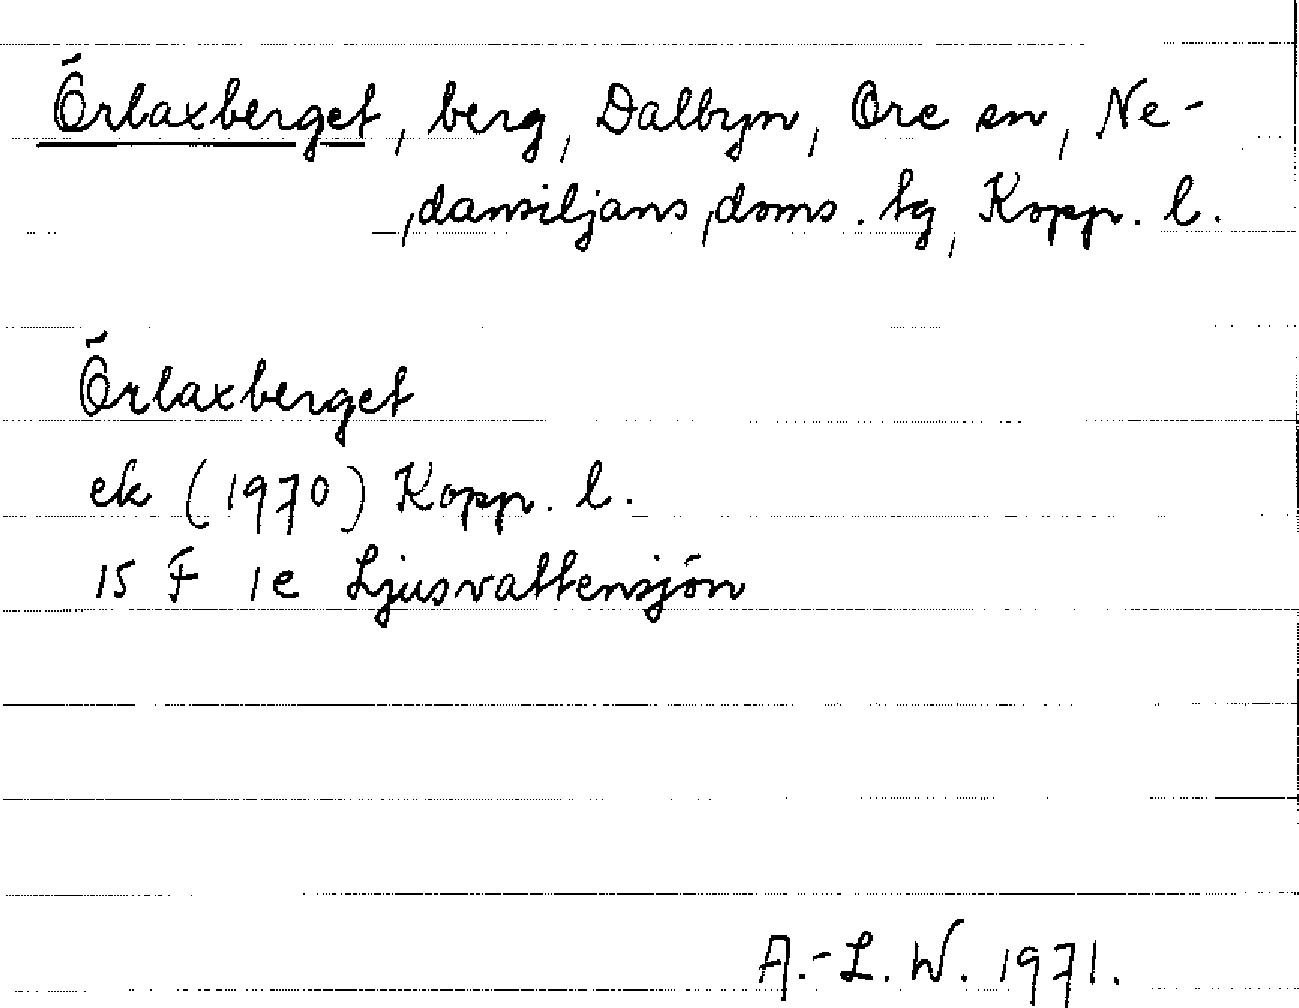 Örlaxberget, berg, Dalbyn, Ore sn, Ne-
dansiljans doms. tg, Kopp. l.
Örlaxberget
ek (1970) Kopp. l.
15 F 1e Ljusvattensjön
A.-L. W. 1971.